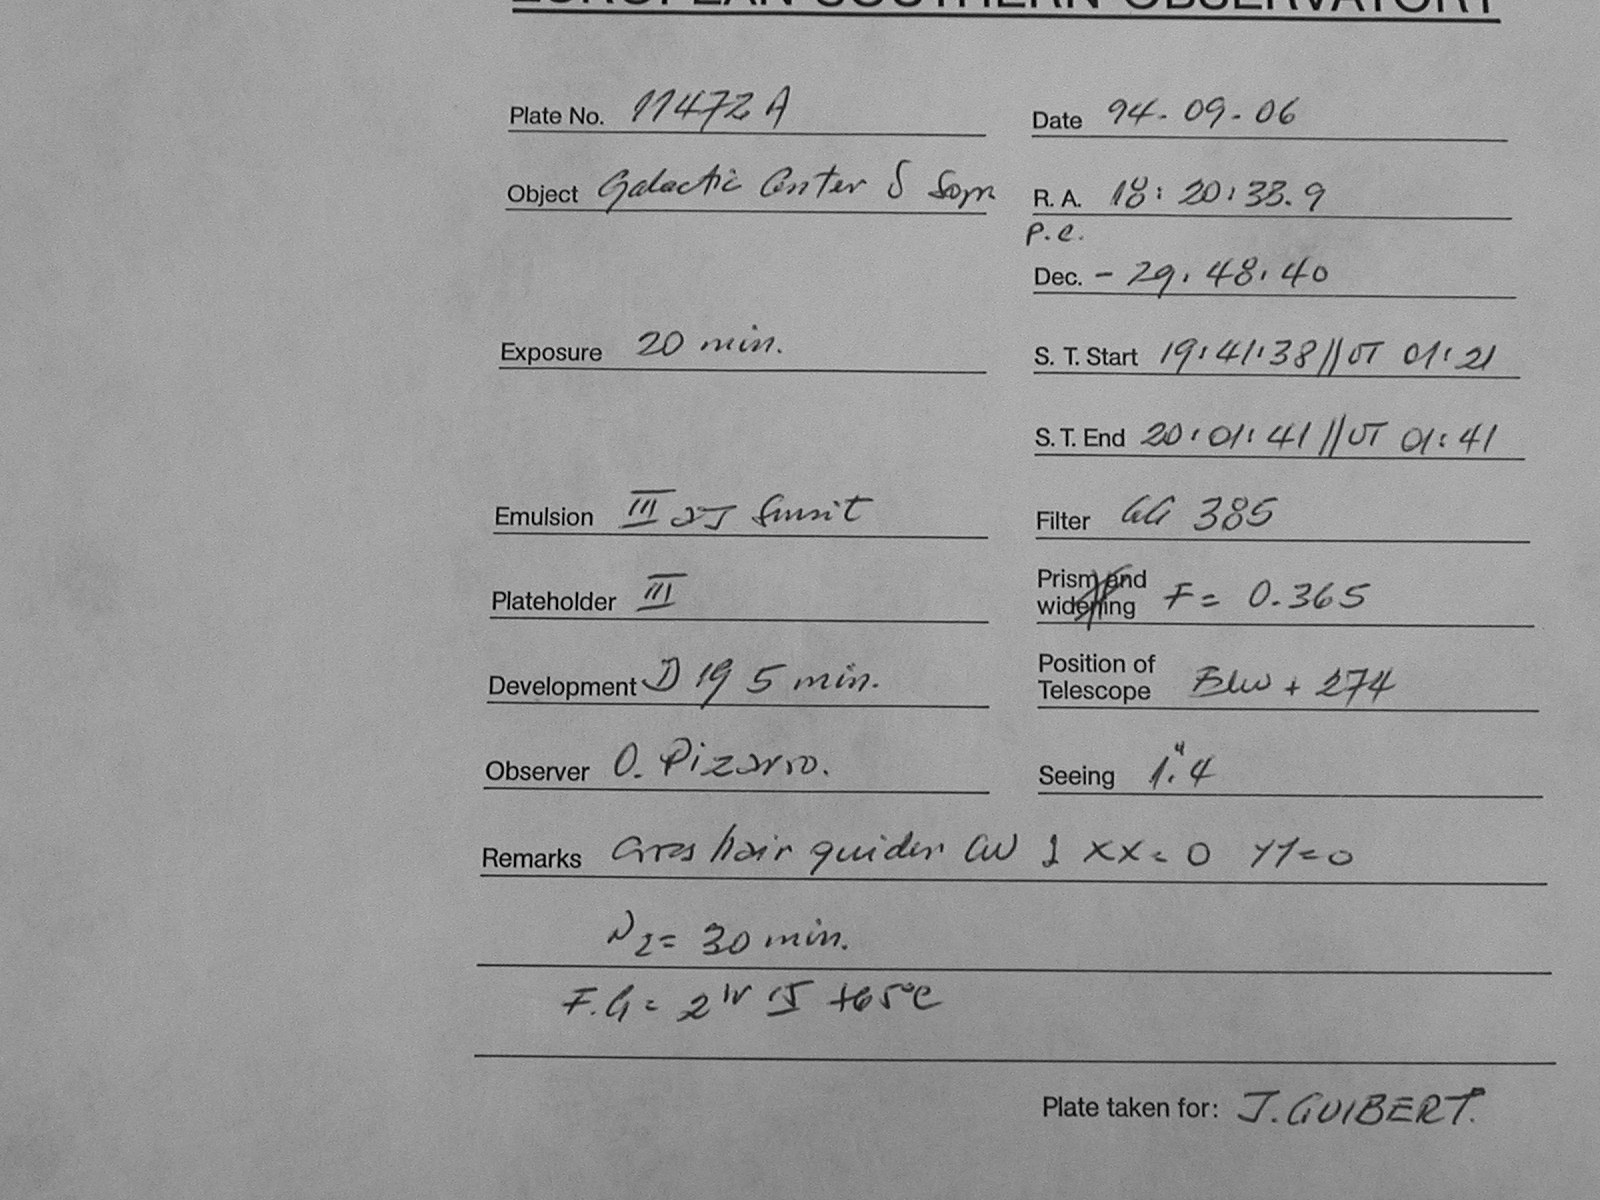 EUROPEAN SOUTHERN OBSERVATORY
Plate No. 11472 A
Date 94-09-06
Object Galactic Center S
R. A. 18:20:33.9
P.C.
Dec. -29:48:40
Exposure 20 min.
S. T. Start 19:41:38//UT 01:21
S. T. End 20:01:41//UT 01:41
Emulsion III
Filter GG 385
Plateholder III
Prism and widening F= 0.365
Development D 19 5 min.
Position of Telescope + 274
Observer O. Pizarro.
Seeing 1".4
Remarks Cross hair guider CW XX=0 YY=0
N2= 30 min.
F.G= 2 hr +65°C
Plate taken for: J. GUIBERT.